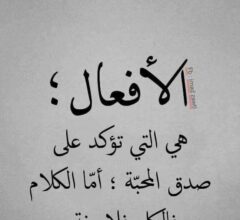 الأفعال ؛
هي التي تؤكد على
صدق المحبّة ؛ أمّا الكلام